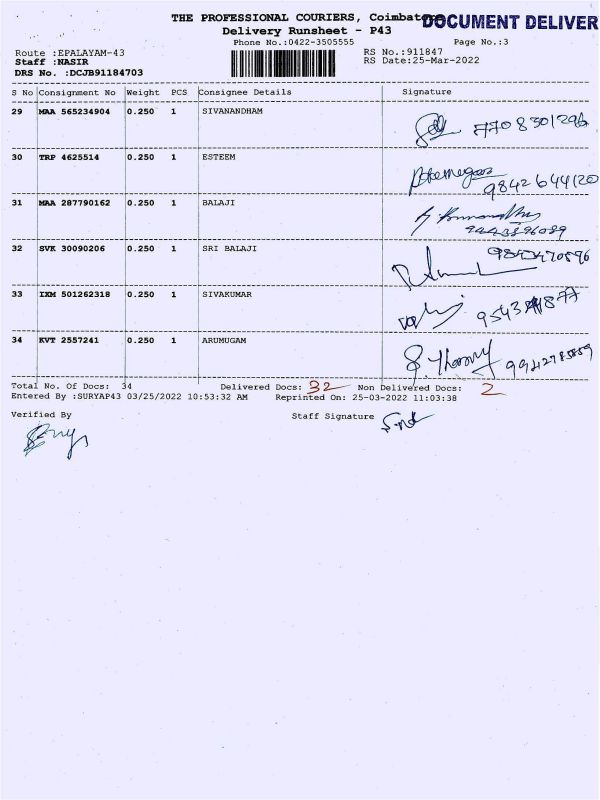 THE PROFESSIONAL COURIERS, Coimbatore
DOCUMENT DELIVER
Delivery Runsheet - P43
Phone No.:0422-3505555 Page No.:3
Route :EPALAYAM-43 RS No.:911847
Staff :NASIR RS Date:25-Mar-2022
DRS No. :DCJB91184703
S No Consignment No Weight PCS Consignee Details Signature
29 MAA 565234904 0.250 1 SIVANANDHAM
7708301296
30 TRP 4625514 0.250 1 ESTEEM
9842644120
31 MAA 287790162 0.250 1 BALAJI
9443396089
32 SVK 30090206 0.250 1 SRI BALAJI
9843470896
33 IXM 501262318 0.250 1 SIVAKUMAR
34 KVT 2557241 0.250 1 ARUMUGAM
Total No. Of Docs: 34 Delivered Docs: 32 Non Delivered Docs: 2
Entered By :SURYAP43 03/25/2022 10:53:32 AM Reprinted On: 25-03-2022 11:03:38
Verified By Staff Signature